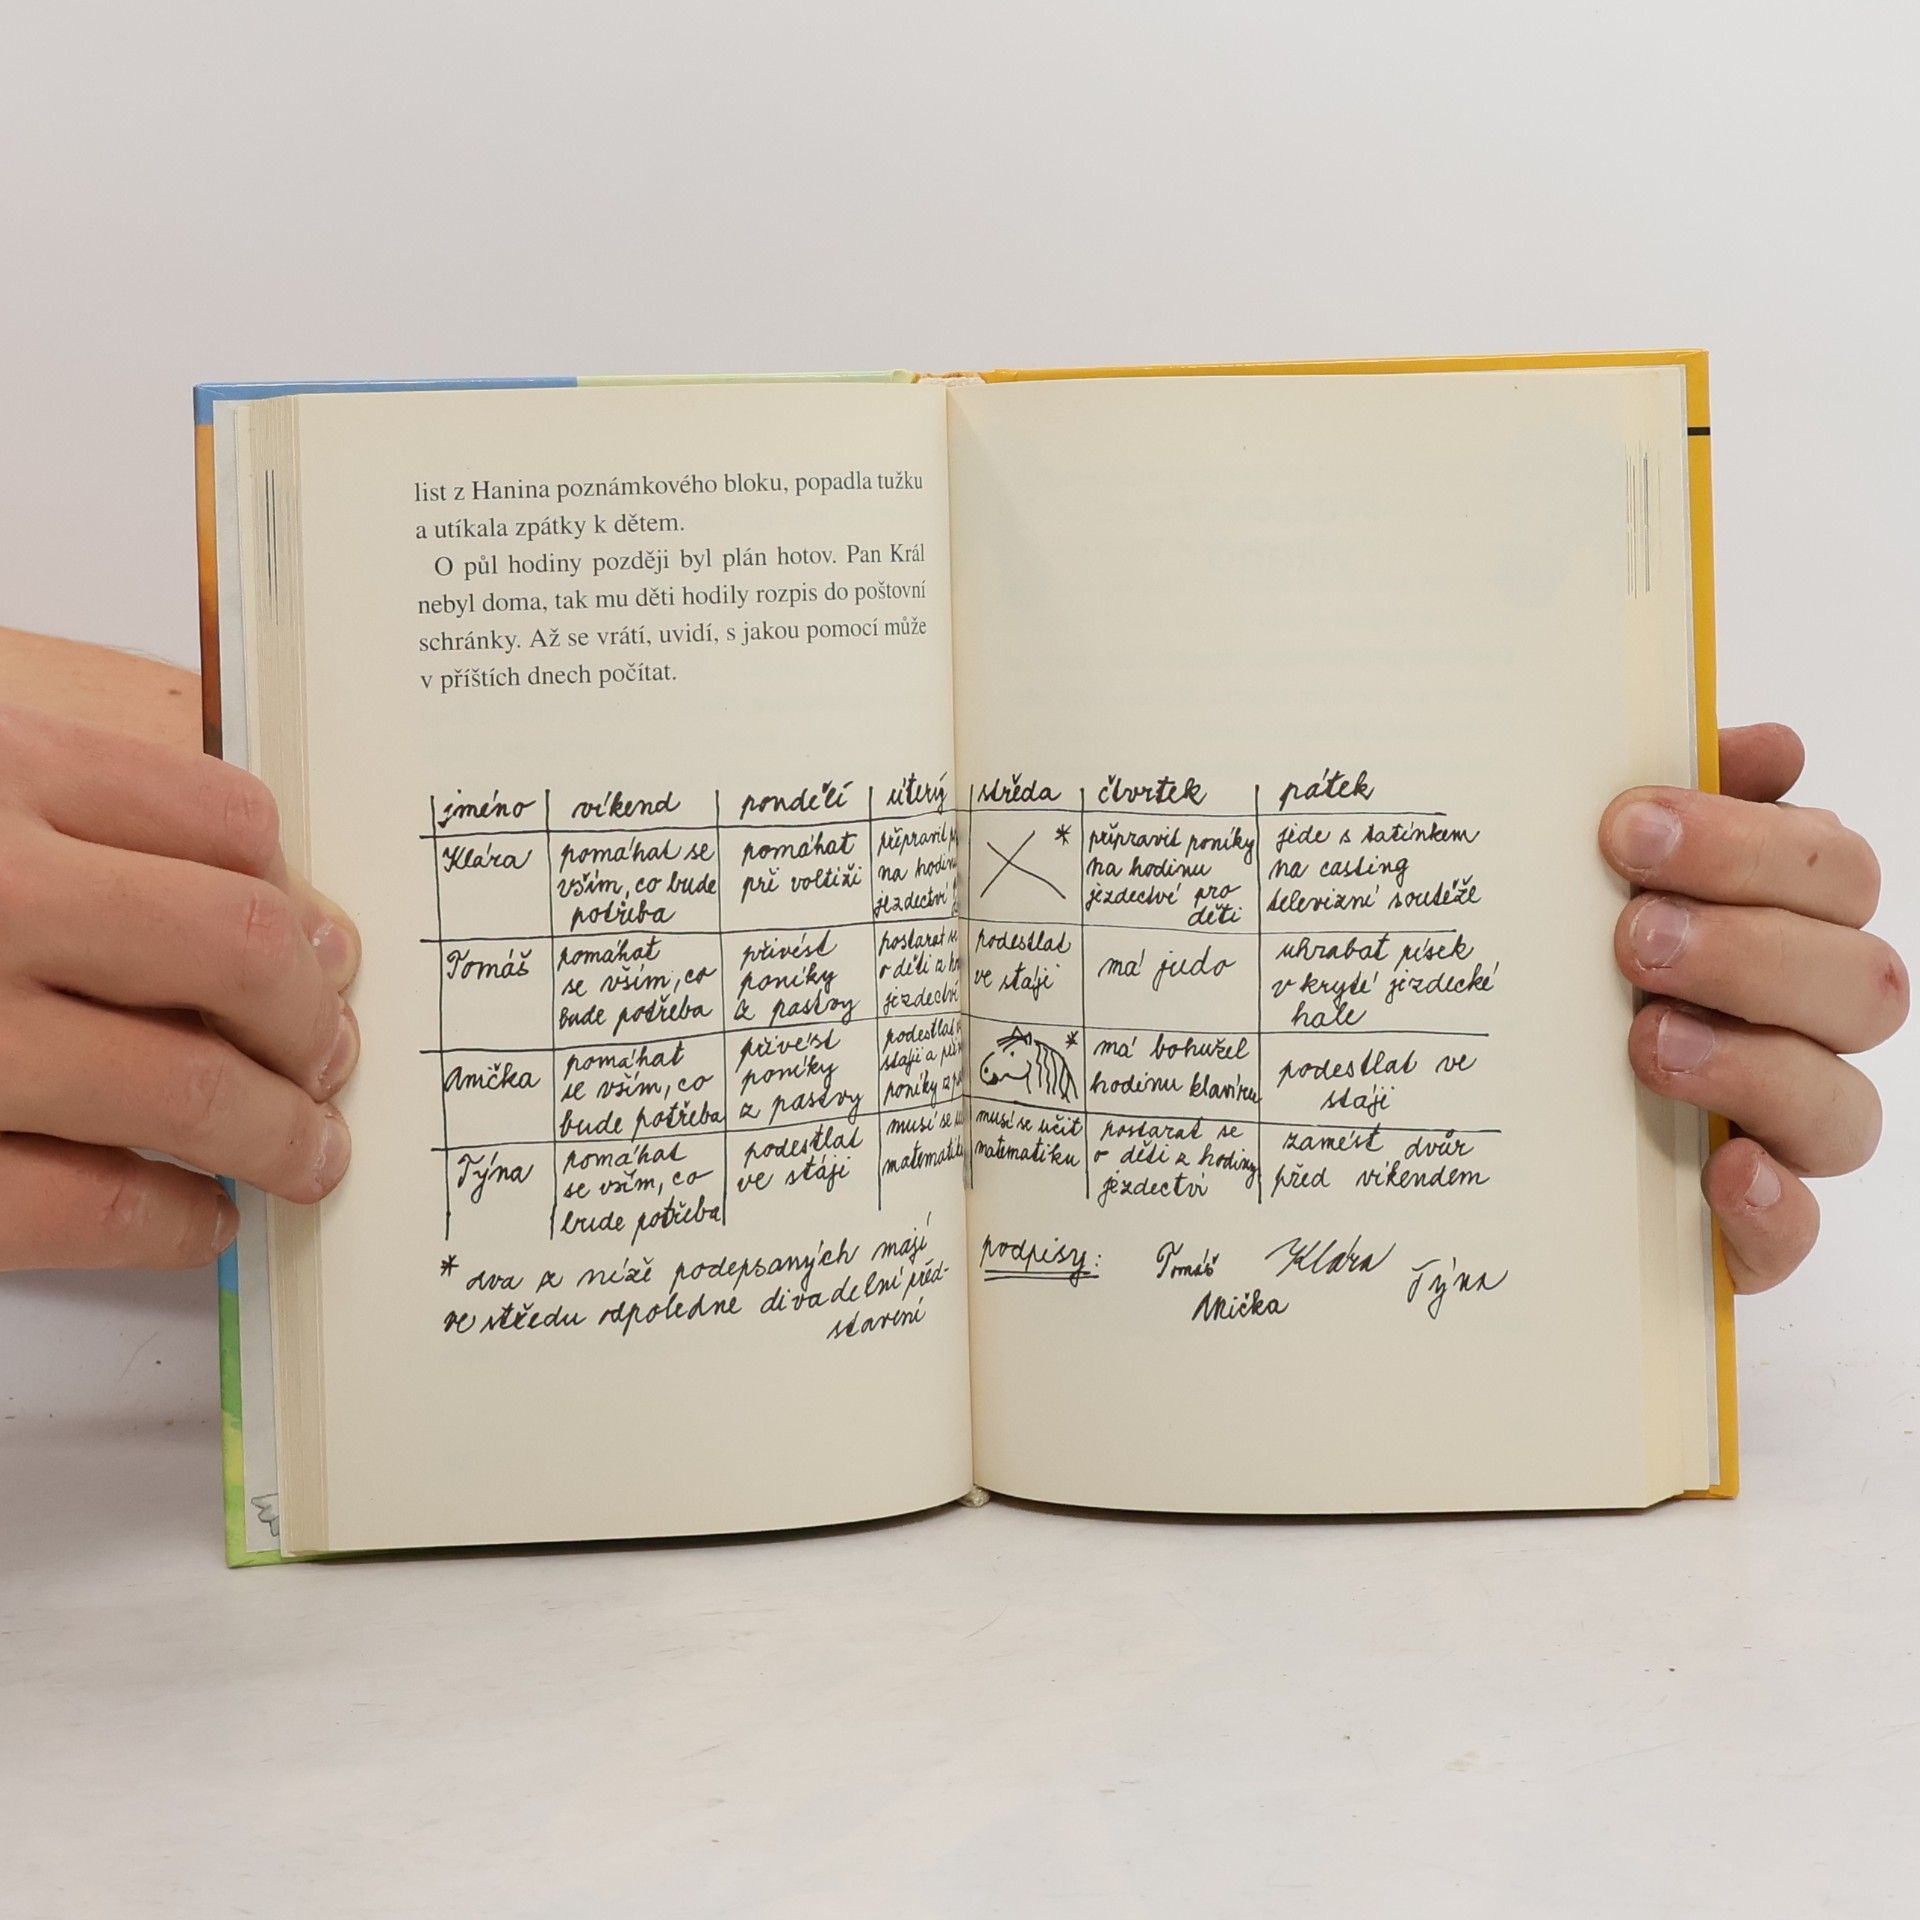 list z Hanina poznámkového bloku, popadla tužku
a utíkala zpátky k dětem.
O půl hodiny později byl plán hotov. Pan Král
nebyl doma, tak mu děti hodily rozpis do poštovní
schránky. Až se vrátí, uvidí, s jakou pomocí může
v příštích dnech počítat.
jméno víkend pondělí úterý středa čtvrtek pátek
Klára
pomáhat se
vším, co bude
potřeba
pomáhat
při voltiži
připravit
na hodinu
jezdectví
*
připravit poníky
na hodinu
jezdectví pro
děti
jede s tatínkem
na casting
televizní soutěže
Tomáš
pomáhat
se vším, co
bude potřeba
přivést
poníky
z pastvy
postarat se
o děti z
jezdectví
podestlat
ve stáji
má judo
uhrabat písek
v kryté jezdecké
hale
Anička
pomáhat
se vším, co
bude potřeba
přivést
poníky
z pastvy
podestlat
stáji a
poníky z
*
má bohužel
hodinu klavíru
podestlat ve
stáji
Týna
pomáhat
se vším, co
bude potřeba
podestlat
ve stáji
musí se
matematiku
musí se učit
matematiku
postarat se
o děti z hodiny
jezdectví
zamést dvůr
před víkendem
* dva z níže podepsaných mají
ve středu odpoledne divadelní před-
stavení
podpisy: Tomáš Klára Týna
Anička